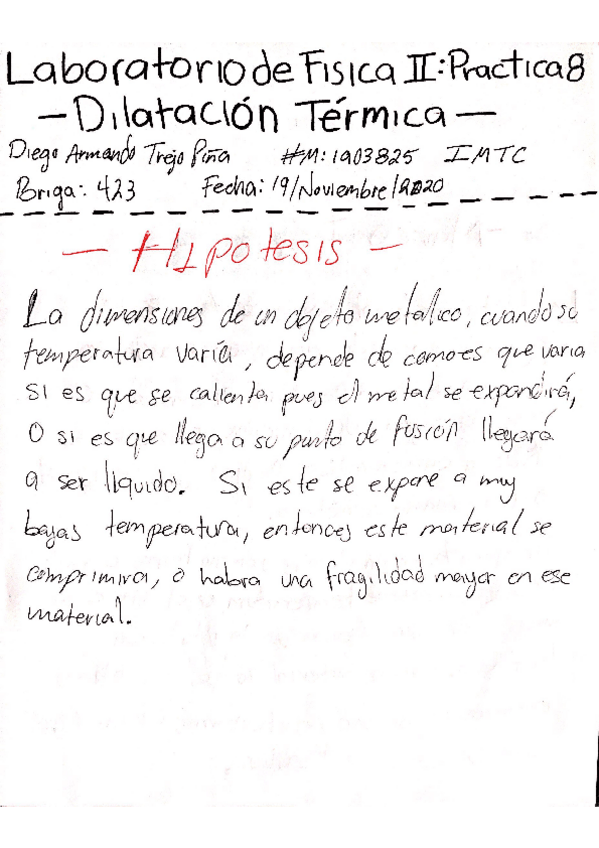 Laboratorio de Fisica II: Practica 8
— Dilatación Térmica —
Diego Armando Trejo Piña #M: 1903825 IMTC
Briga: 423 Fecha: 19/Noviembre/2020
— Hipotesis —
La dimensiones de un objeto metalico, cuando su
temperatura varía, depende de como es que varia
si es que se calienta pues el metal se expandirá,
O si es que llega a su punto de fusión llegará
a ser liquido. Si este se expone a muy
bajas temperatura, entonces este material se
comprimira, o habra una fragilidad mayor en ese
material.